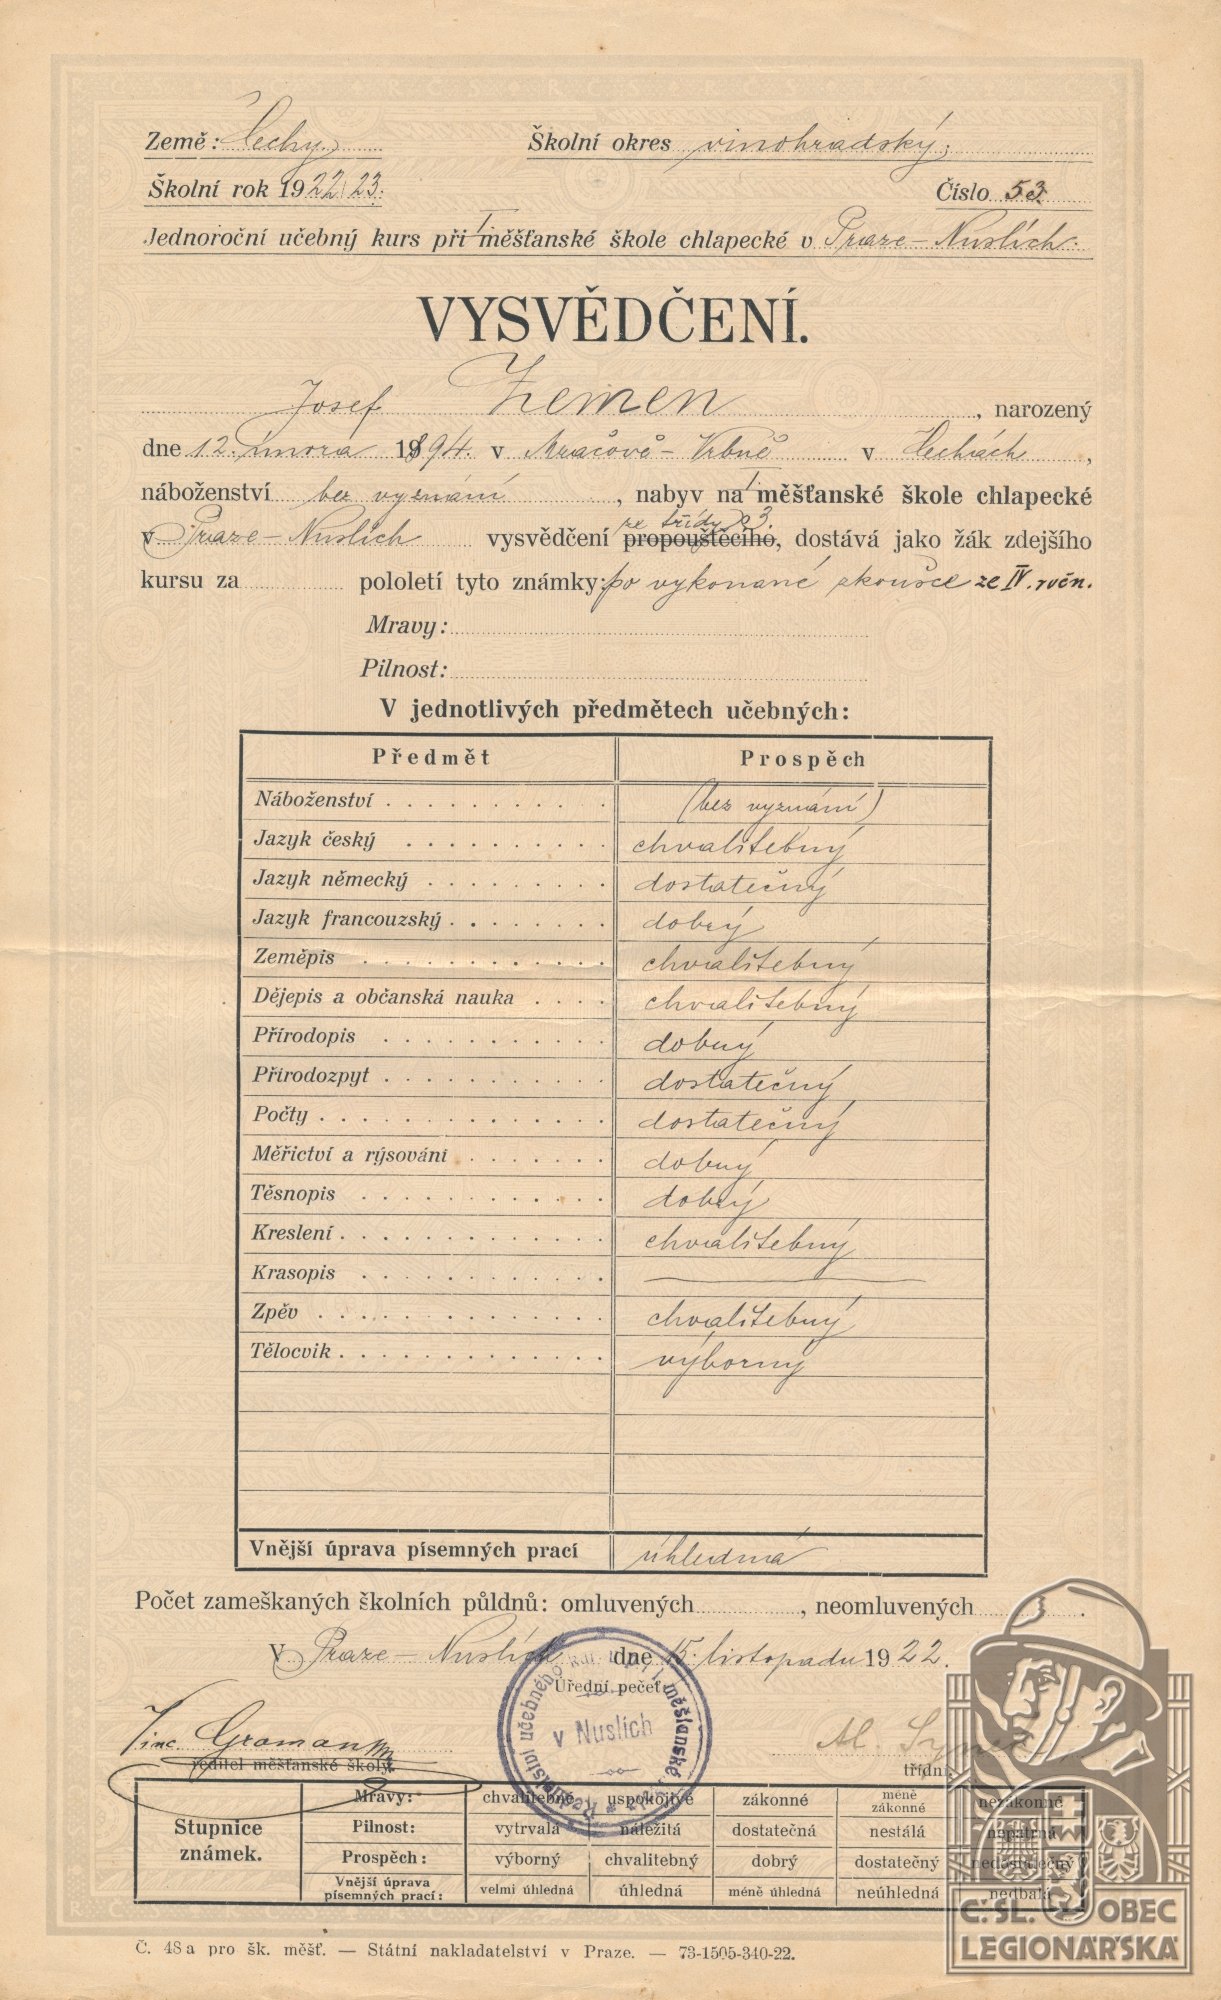 Země: Čechy. Školní okres vinohradský.
Školní rok 1922/23. Číslo 53.
Jednoroční učebný kurs při I. měšťanské škole chlapecké v Praze-Nuslích.
VYSVĚDČENÍ.
Josef Zemen, narozený
dne 12. února 1894. v v Čechách,
náboženství bez vyznání, nabyv na I. měšťanské škole chlapecké
ze třídy 3.
v Praze-Nuslích vysvědčení propouštěcího, dostává jako žák zdejšího
kursu za pololetí tyto známky: po vykonané zkoušce ze IV. ročn.
Mravy:
Pilnost:
V jednotlivých předmětech učebných:
Předmět Prospěch
Náboženství (bez vyznání)
Jazyk český chvalitebný
Jazyk německý dostatečný
Jazyk francouzský dobrý
Zeměpis chvalitebný
Dějepis a občanská nauka chvalitebný
Přírodopis dobrý
Přírodozpyt dostatečný
Počty dostatečný
Měřictví a rýsování dobrý
Těsnopis dobrý
Kreslení chvalitebný
Krasopis
Zpěv chvalitebný
Tělocvik výborný
Vnější úprava písemných prací úhledná
Počet zameškaných školních půldnů: omluvených, neomluvených.
V Praze-Nuslích dne 15. listopadu 1922.
Úřední pečeť
v Nuslích
Vinc.
Al.
ředitel měšťanské školy.
třídní
Stupnice známek.
Mravy: chvalitebné uspokojivé zákonné méně zákonné nezákonné
Pilnost: vytrvalá náležitá dostatečná nestálá nepatrná
Prospěch: výborný chvalitebný dobrý dostatečný nedostatečný
Vnější úprava písemných prací: velmi úhledná úhledná méně úhledná neúhledná nedbalá
Č. 48 a pro šk. měšť. — Státní nakladatelství v Praze. — 73-1505-340-22.
Č. SL. OBEC
LEGIONÁŘSKÁ